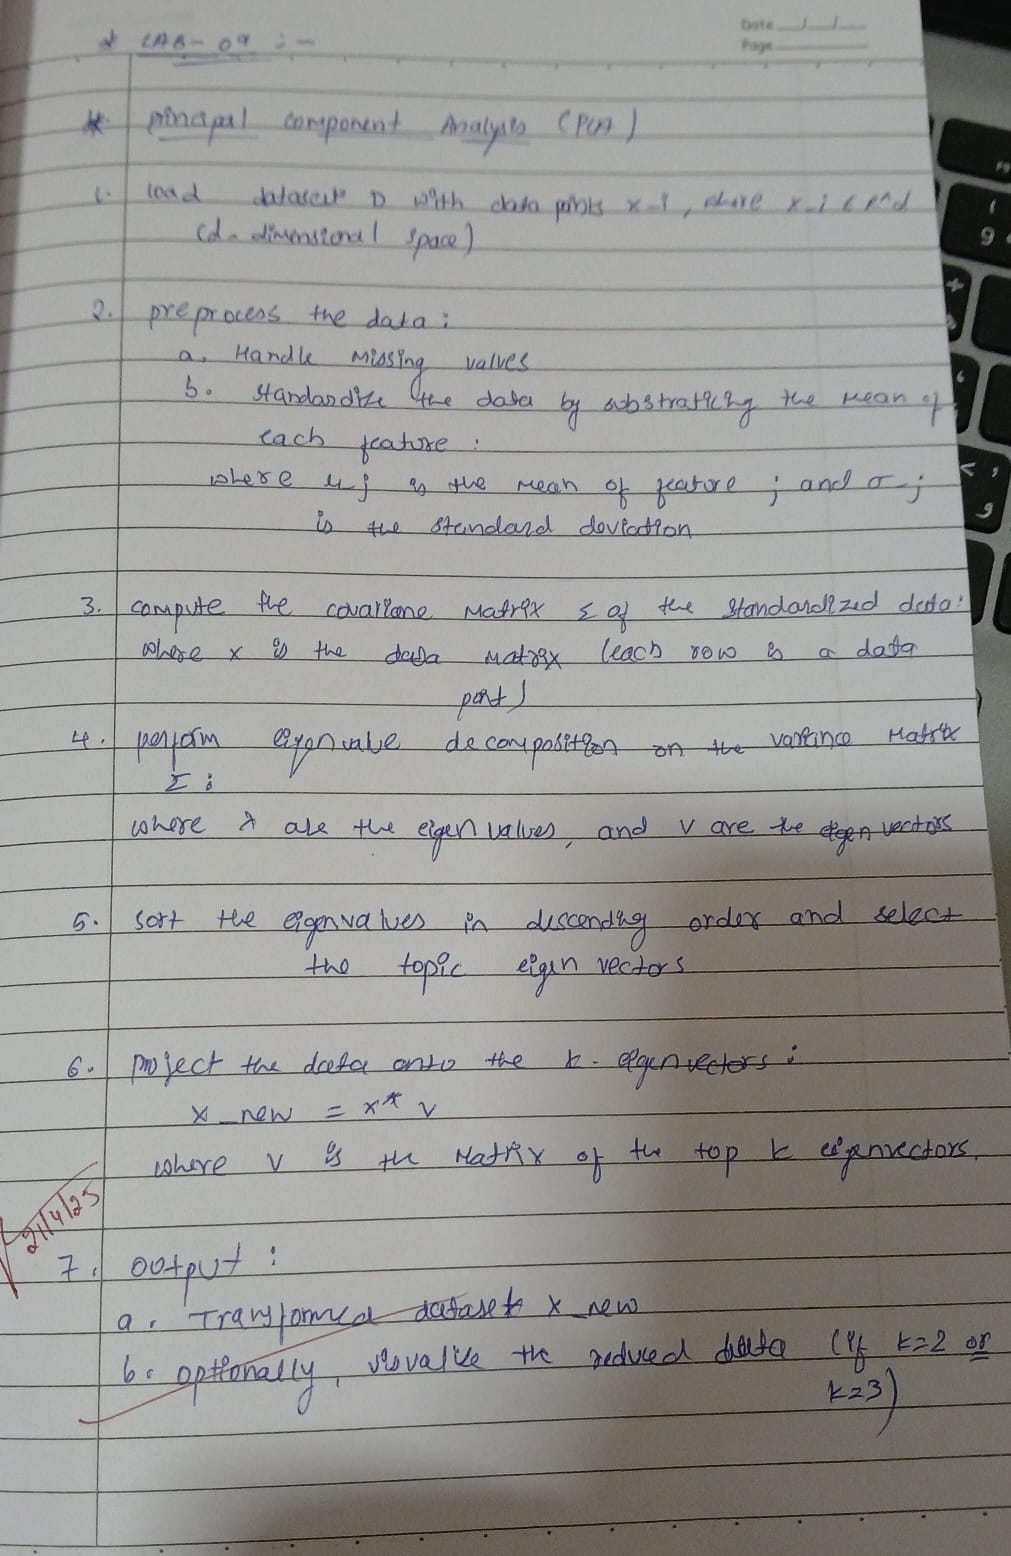 Date
Page
* LAB-09 :-
* pincipal component Analysis (PCA)
1. load dataset D with data points x-i, where x-i
(d-dimensional space)
2. preprocess the data:
a. Handle missing values
b. standardize the data by substraticing the mean of
each feature:
where u-j is the mean of feature j and σ-j
is the standard deviation
3. compute the covariane matrix Σ of the standardized data:
where x is the data matrix (each row is a data
pont)
4. perform eigenvalue decomposition on the varince matrix
Σ:
where λ are the eigen values, and v are the eigen vectors
5. sort the eigenvalues in descending order and select
the topic eigen vectors
6. project the data onto the k-eigenvectors:
x_new = x* v
where v is the matrix of the top k eigenvectors.
21/4/25
7. output:
a. Transformed dataset x_new
b. optionally, visvalize the reduced data (if k=2 or
k=3)